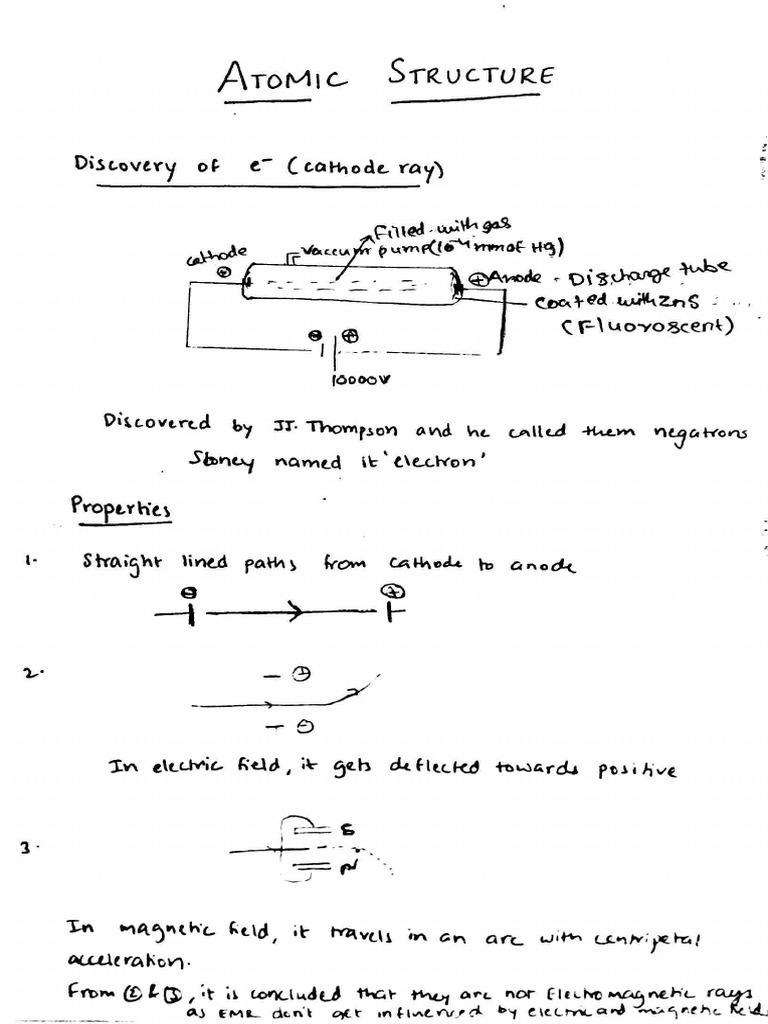 ATOMIC STRUCTURE
Discovery of e⁻ (cathode ray)
Filled with gas
cathode
Vaccum pump (10⁻⁴ mm of Hg)
⊕ Anode - Discharge tube
coated with ZnS
(Fluoroscent)
⊖ ⊕
10000V
Discovered by JJ. Thompson and he called them negatrons
Stoney named it 'electron'
Properties
1. Straight lined paths from cathode to anode
⊖ ⊕
2. - ⊕
- ⊖
In electric field, it gets deflected towards positive
3. S
N
In magnetic field, it travels in an arc with centripetal
acceleration.
From ② & ③, it is concluded that they are not Electromagnetic rays
as EMR don't get influenced by electric and magnetic fields